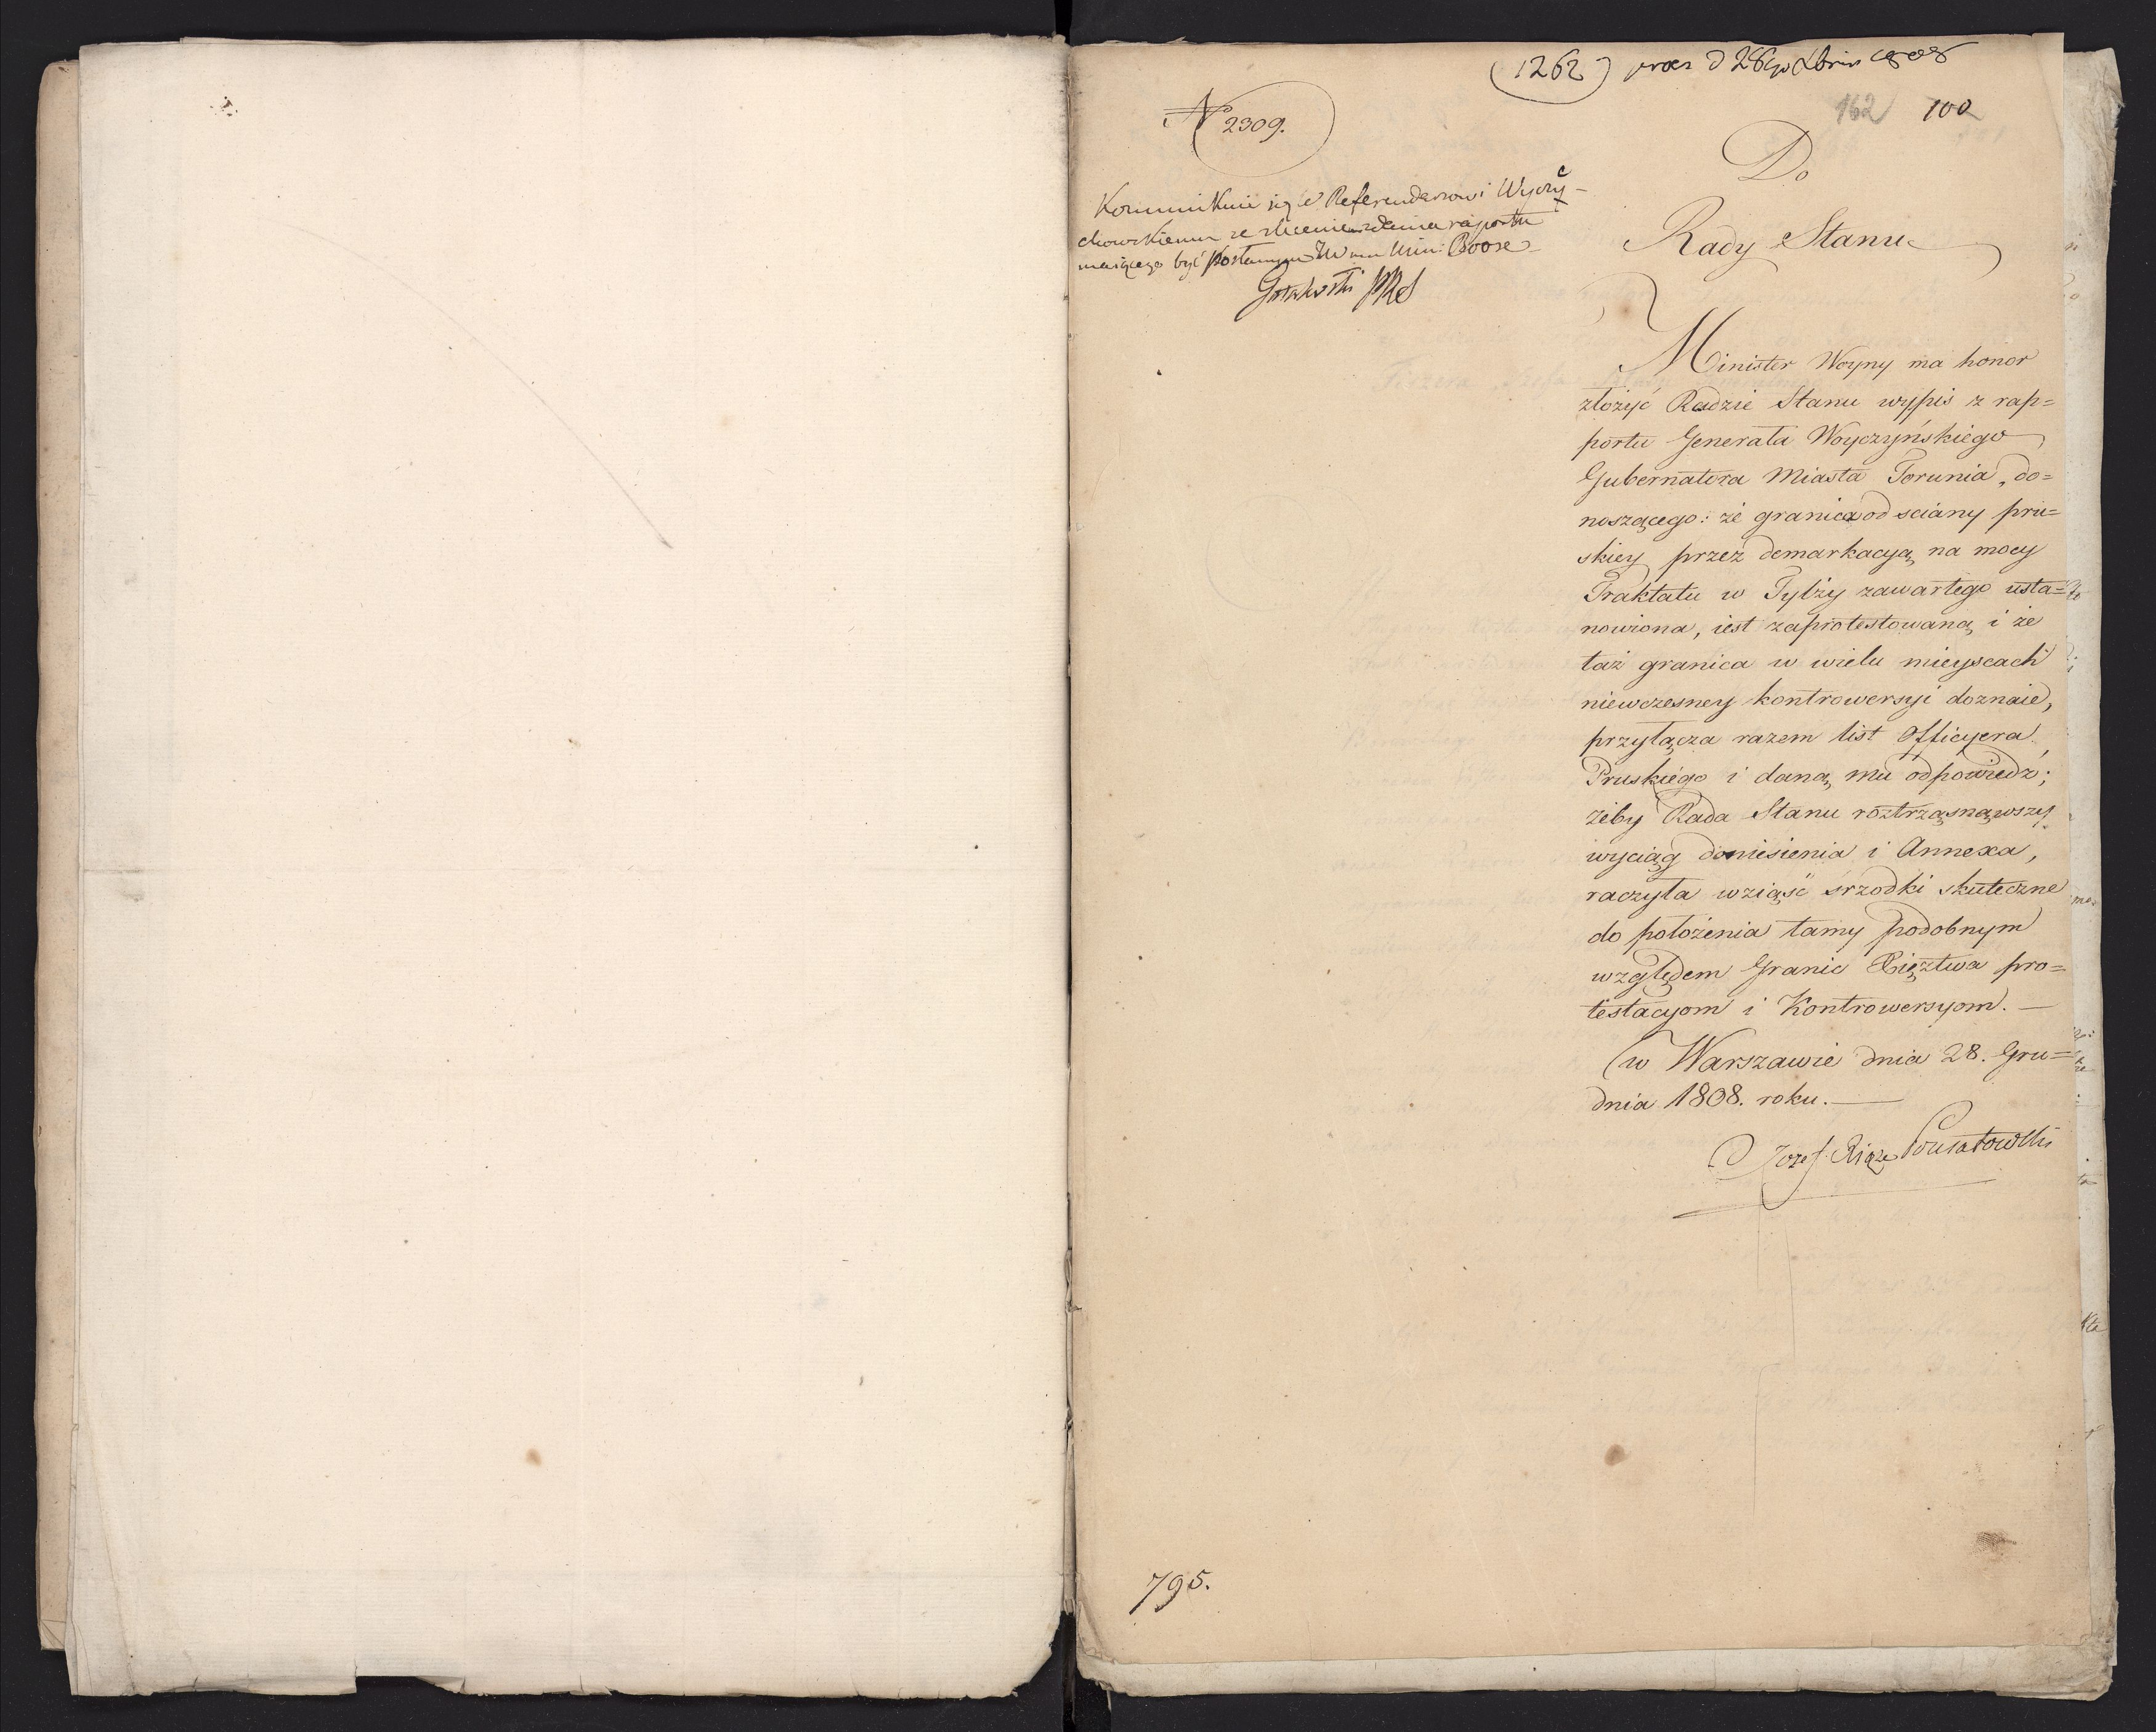 (1262) prez d 28go Xbris 1808
162 100
N 2309.
Kommunikuie się W Referendarzowi Wyczy-
chowskiemu ze zleceniem zdania raportu
maiącego być posłanym JW mu Min: Boose
Gutakowski PRS
Do
Rady Stanu
Minister Woyny ma honor
złożyć Radzie Stanu wypis z rap=
portu Generała Woyczyńskiego
Gubernatora Miasta Torunia, do=
noszącego: że granica od sciany pru=
skiey przez demarkacyą na mocy
Traktatu w Tylży zawartego usta=
nowiona, iest zaprotestowaną i że
taż granica w wielu mieyscach
niewczesney kontrowersyi doznaie,
przyłącza razem list Officyera
Pruskiego i daną mu odpowiedź;
żeby Rada Stanu roztrząsnąwszy
wyciąg doniesienia i Annexa,
raczyła wziąść srzodki skuteczne
do położenia tamy podobnym
względem Granic Xięztwa pro=
testacyom i Kontrowersyom. —
w Warszawie dnia 28. Gru=
dnia 1808. roku. —
Jozef Xiąże Poniatowski
795.